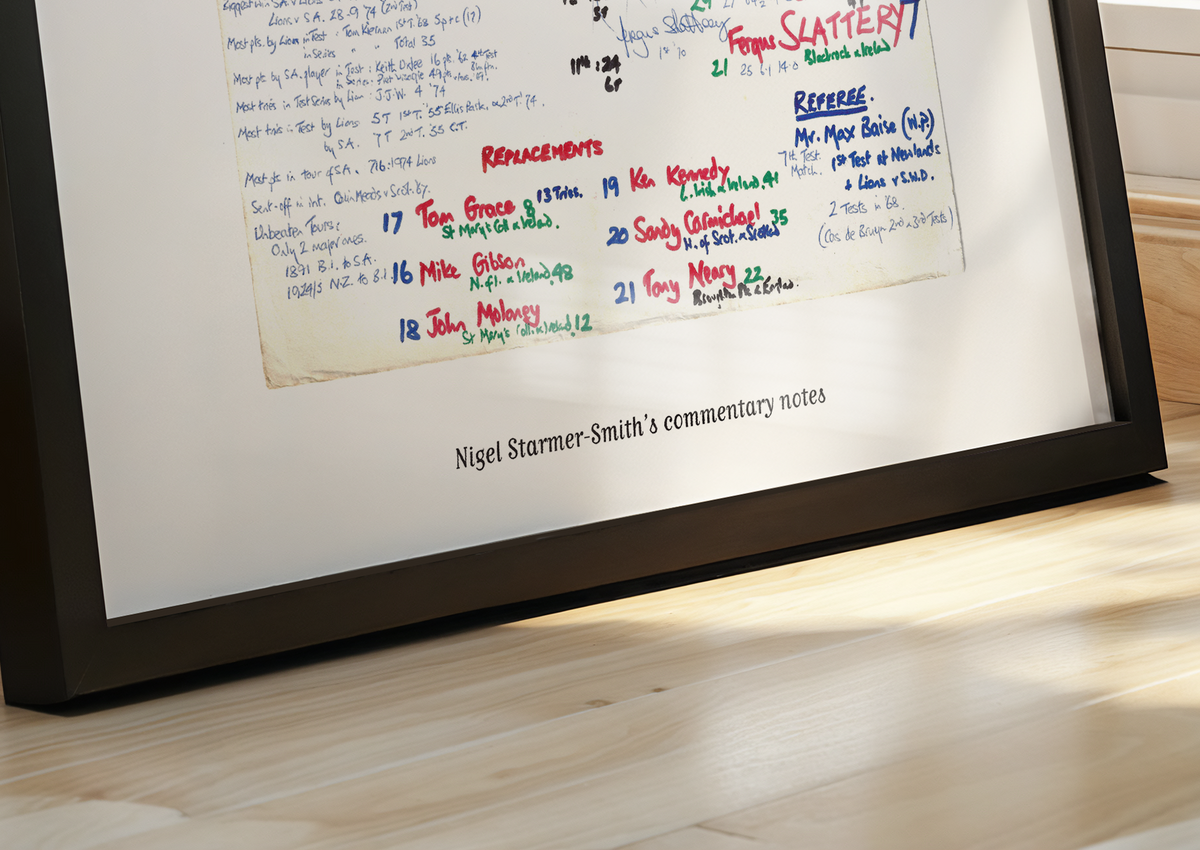 Lions v S.A. 28-9 '74 (2nd Test)
Most pts. by Lion in Test : Tom Kiernan 1st T. '68 5p+c (17)
in Series " " Total 35
Most pts by S.A. player in Test : Keith Oxlee 16 pts. '62 4th Test
in Series : Piet Visagie 49 pts
Most tries in Test Series by Lion : J.J.W. 4 '74
Most tries in Test by Lions 5T 1st T. '55 Ellis Park, or 2nd T '74.
by S.A. 7T 2nd T. '55 C.T.
Most pts in tour of S.A. 716:1974 Lions
Sent-off in int. Colin Meads v Scot. 67.
Unbeaten Tours:
Only 2 major ones.
1891 B.I. to S.A.
1924/5 N.Z. to B.I.
Fergus Slattery
1st '70
11th : 24
6r
Fergus SLATTERY 7
21 25 6-1 14-0 Blackrock & Ireland
REPLACEMENTS
17 Tom Grace 8 13 Tries.
St Mary's Coll & Ireland.
16 Mike Gibson
N.I.F.C. & Ireland 48
18 John Moloney
St Mary's Coll. & Ireland 12
19 Ken Kennedy
L. Irish & Ireland. 41
20 Sandy Carmichael 35
W. of Scot. & Scotland
21 Tony Neary 22
Broughton Pk & England.
REFEREE.
Mr. Max Baise (W.P.)
7th Test Match.
1st Test at Newlands
+ Lions v S.W.D.
2 Tests in '68.
(Cas de Bruyn 2nd & 3rd Tests)
Nigel Starmer-Smith's commentary notes